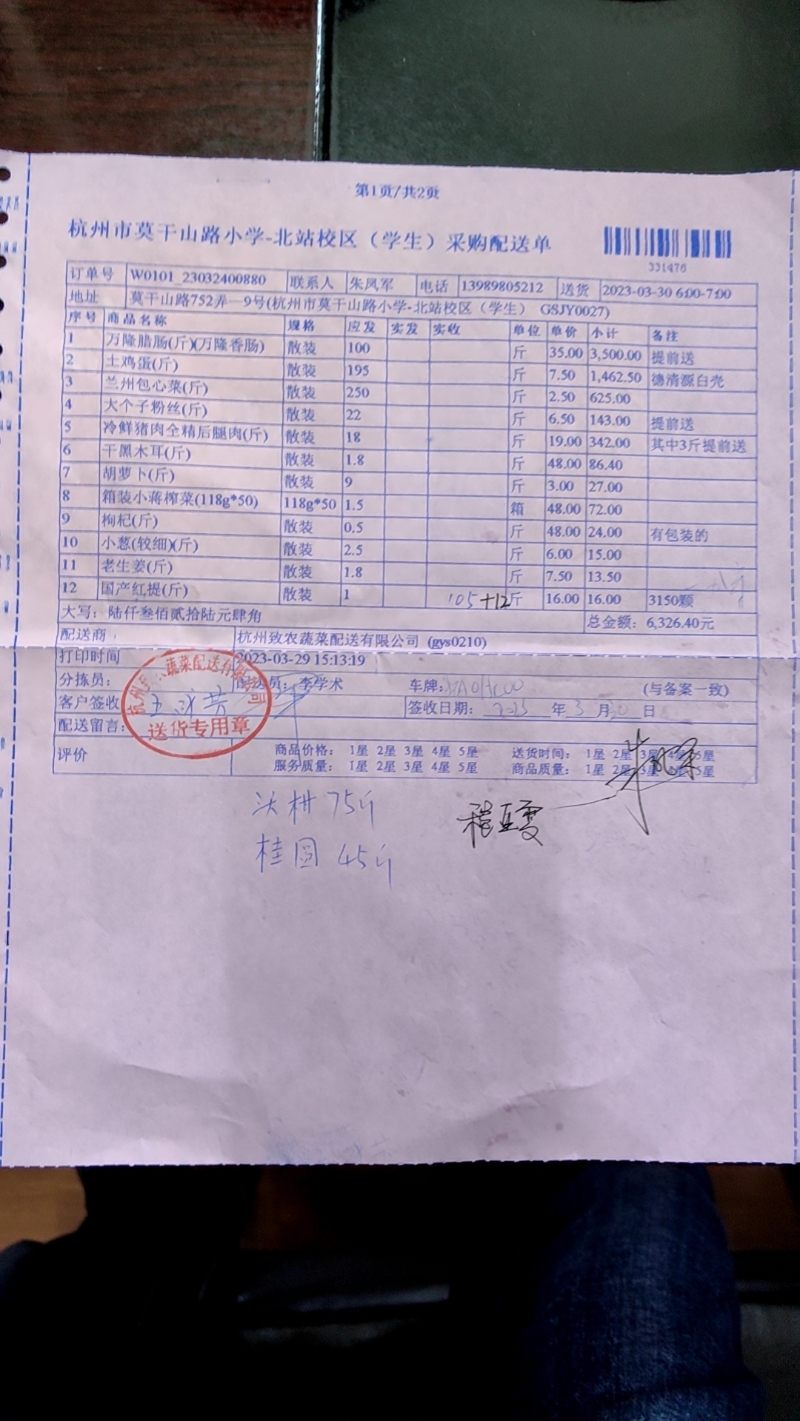 第1页/共2页
杭州市莫干山路小学-北站校区（学生）采购配送单
331476
订单号 W0101_23032400880 联系人 朱凤军 电话 13989805212 送货 2023-03-30 6:00-7:00
地址 莫干山路752弄一9号(杭州市莫干山路小学-北站校区（学生） GSJY0027)
序号 商品名称 规格 应发 实发 实收 单位 单价 小计 备注
1 万隆腊肠(斤)(万隆香肠) 散装 100 斤 35.00 3,500.00 提前送
2 土鸡蛋(斤) 散装 195 斤 7.50 1,462.50 德清源白壳
3 兰州包心菜(斤) 散装 250 斤 2.50 625.00
4 大个子粉丝(斤) 散装 22 斤 6.50 143.00 提前送
5 冷鲜猪肉全精后腿肉(斤) 散装 18 斤 19.00 342.00 其中3斤提前送
6 干黑木耳(斤) 散装 1.8 斤 48.00 86.40
7 胡萝卜(斤) 散装 9 斤 3.00 27.00
8 箱装小蒋榨菜(118g*50) 118g*50 1.5 箱 48.00 72.00
9 枸杞(斤) 散装 0.5 斤 48.00 24.00 有包装的
10 小葱(较细)(斤) 散装 2.5 斤 6.00 15.00
11 老生姜(斤) 散装 1.8 斤 7.50 13.50
12 国产红提(斤) 散装 1 105+12 斤 16.00 16.00 3150颗
大写：陆仟叁佰贰拾陆元肆角 总金额：6,326.40元
配送商 杭州致农蔬菜配送有限公司 (gys0210)
打印时间 2023-03-29 15:13:19
分拣员： 配送员：李学术 车牌： (与备案一致)
客户签收 签收日期： 年3月 日
送货专用章
配送留言：
评价 商品价格： 1星 2星 3星 4星 5星 送货时间： 1星 2星 3星 4星 5星
服务质量： 1星 2星 3星 4星 5星 商品质量： 1星 2星 3星 4星 5星
75斤
桂圆 45斤